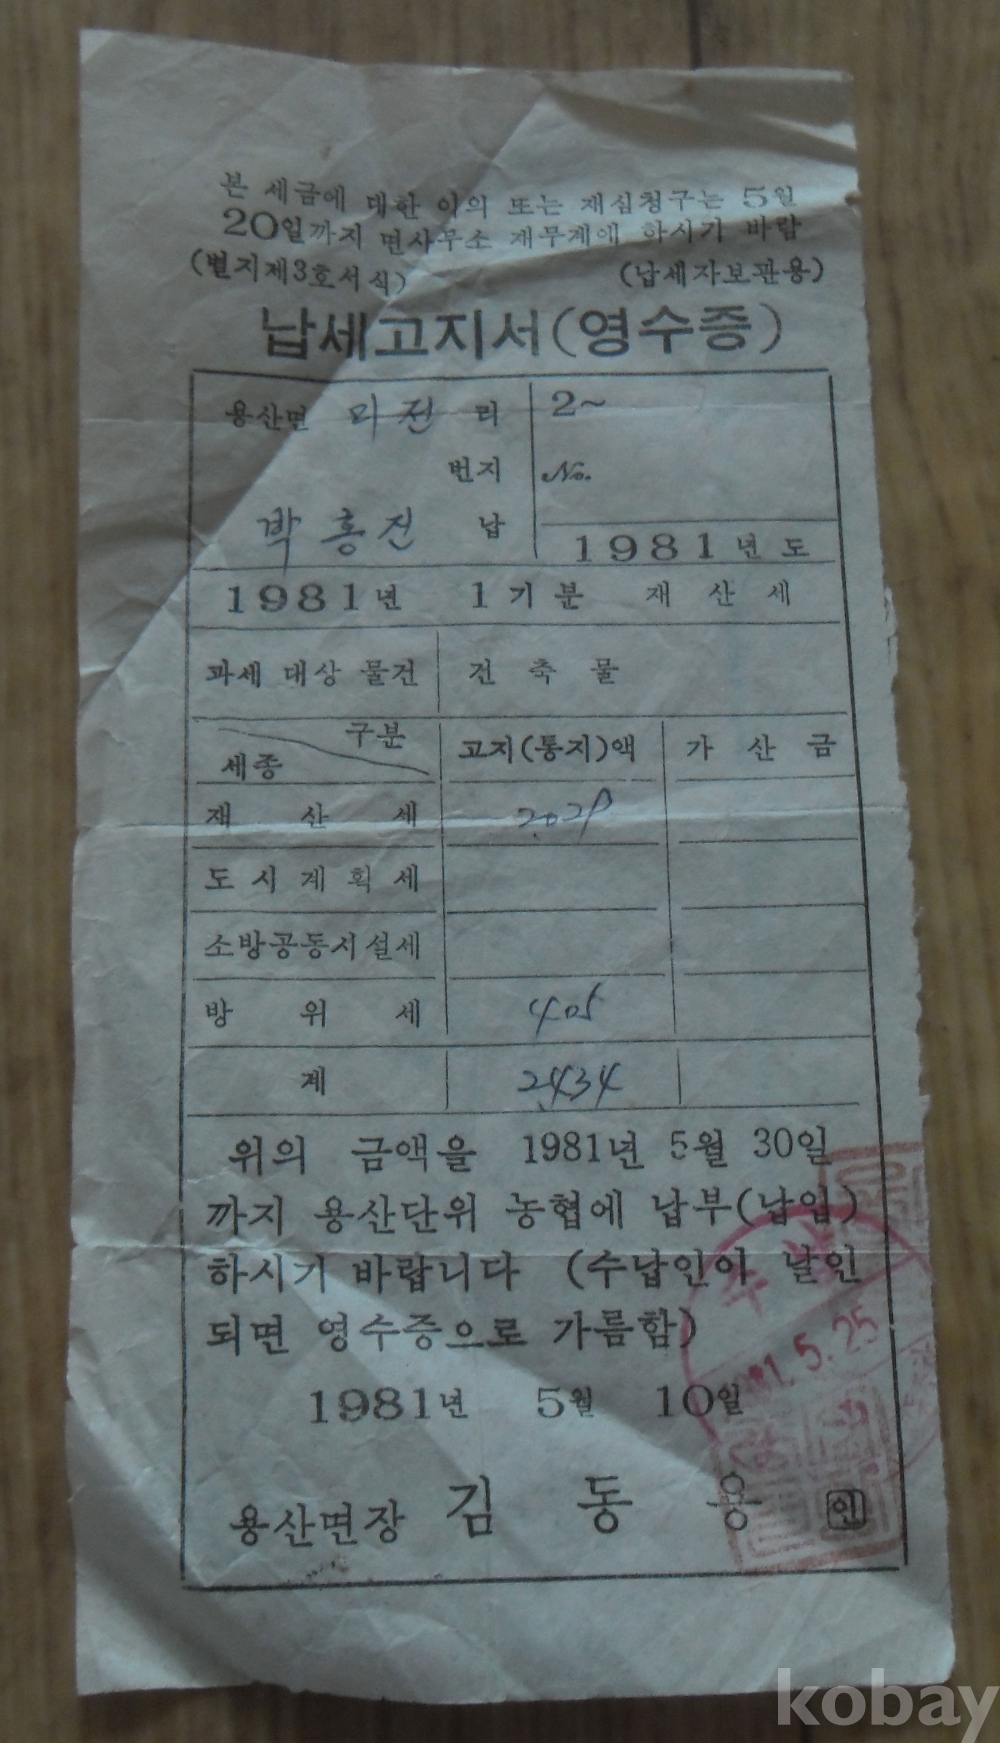 본 세금에 대한 이의 또는 재심청구는 5월
20일까지 면사무소 재무계에 하시기 바람
(별지제3호서식) (납세자보관용)
납세고지서(영수증)
용산면 미전 리 2~
번지 No.
박홍진 납
1981년도
1981년 1기분 재산세
과세 대상 물건 건축물
구분
세종 고지(통지)액 가산금
재산세 2.029
도시계획세
소방공동시설세
방위세 405
계 2.434
위의 금액을 1981년 5월 30일
까지 용산단위 농협에 납부(납입)
하시기 바랍니다 (수납인이 날인
되면 영수증으로 가름함)
5.25
1981년 5월 10일
용산면장 김동용 인
kobay